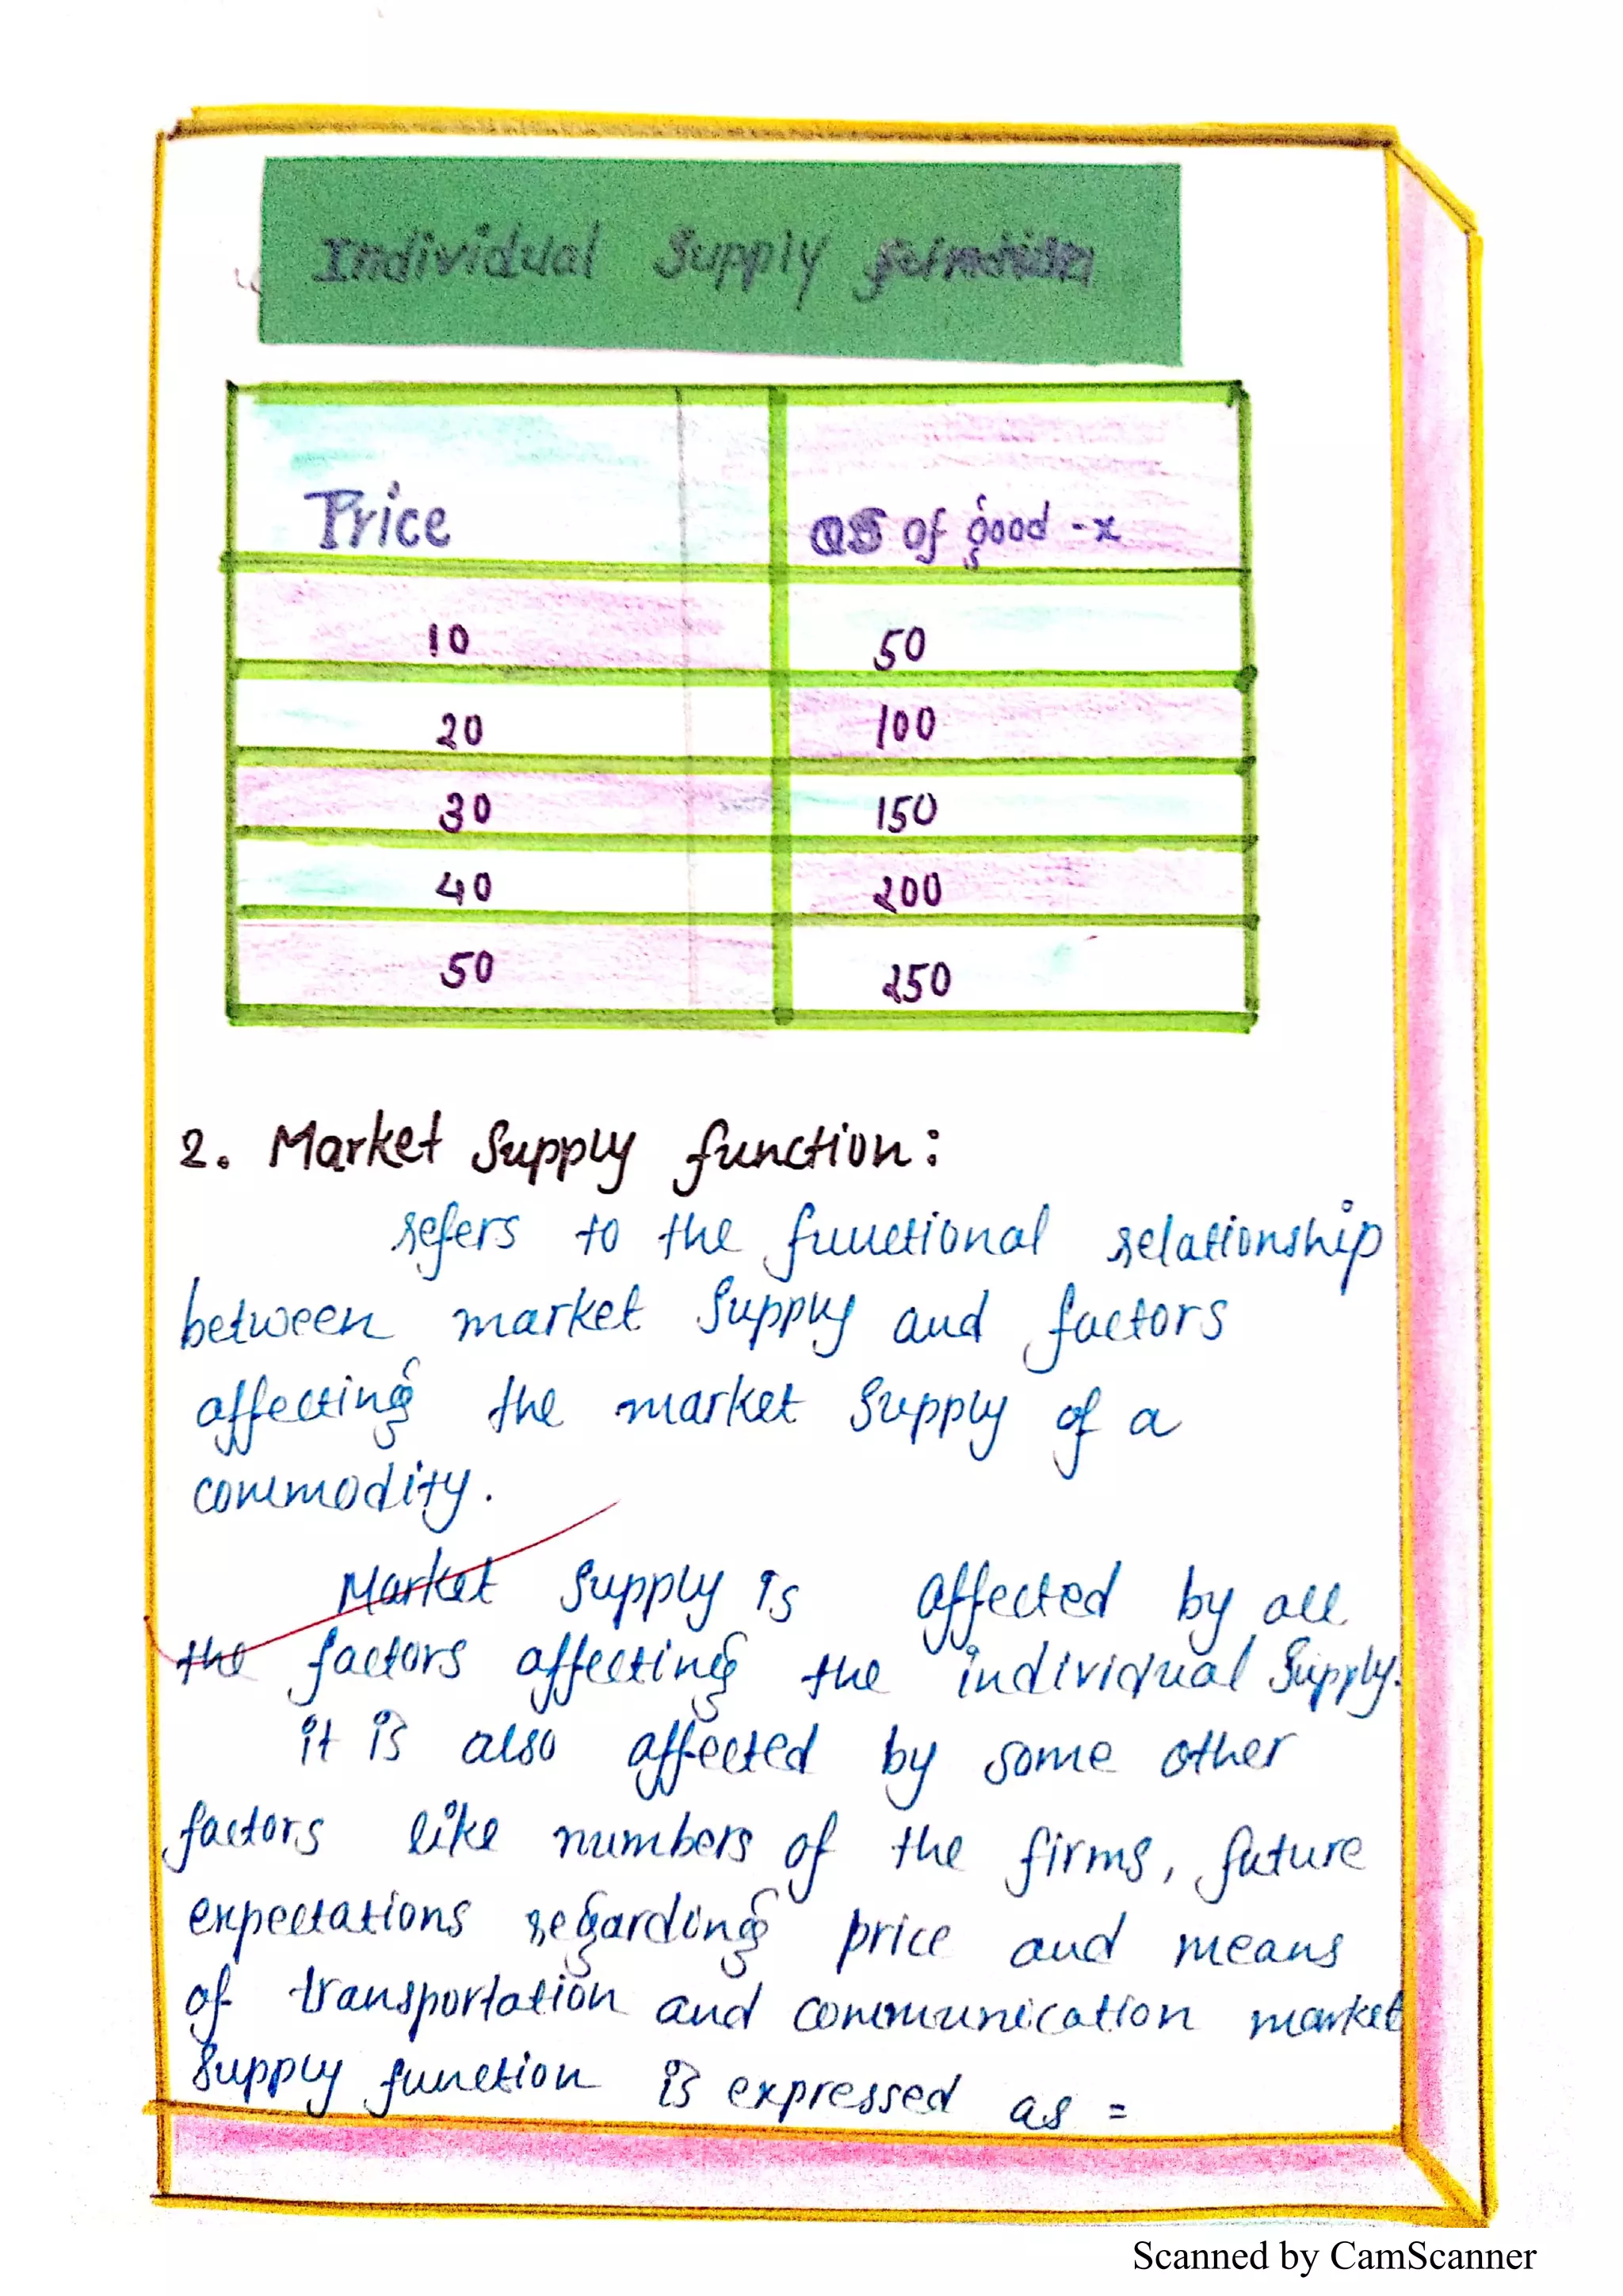 Individual Supply function
Price QS of good -x
10 50
20 100
30 150
40 200
50 250
2. Market Supply function:
refers to the functional relationship
between market Supply and factors
affecting the market Supply of a
commodity.
Market Supply is affected by all
the factors affecting the individual Supply.
it is also affected by some other
factors like numbers of the firms, future
expectations regarding price and means
of transportation and communication market
Supply function is expressed as =
Scanned by CamScanner